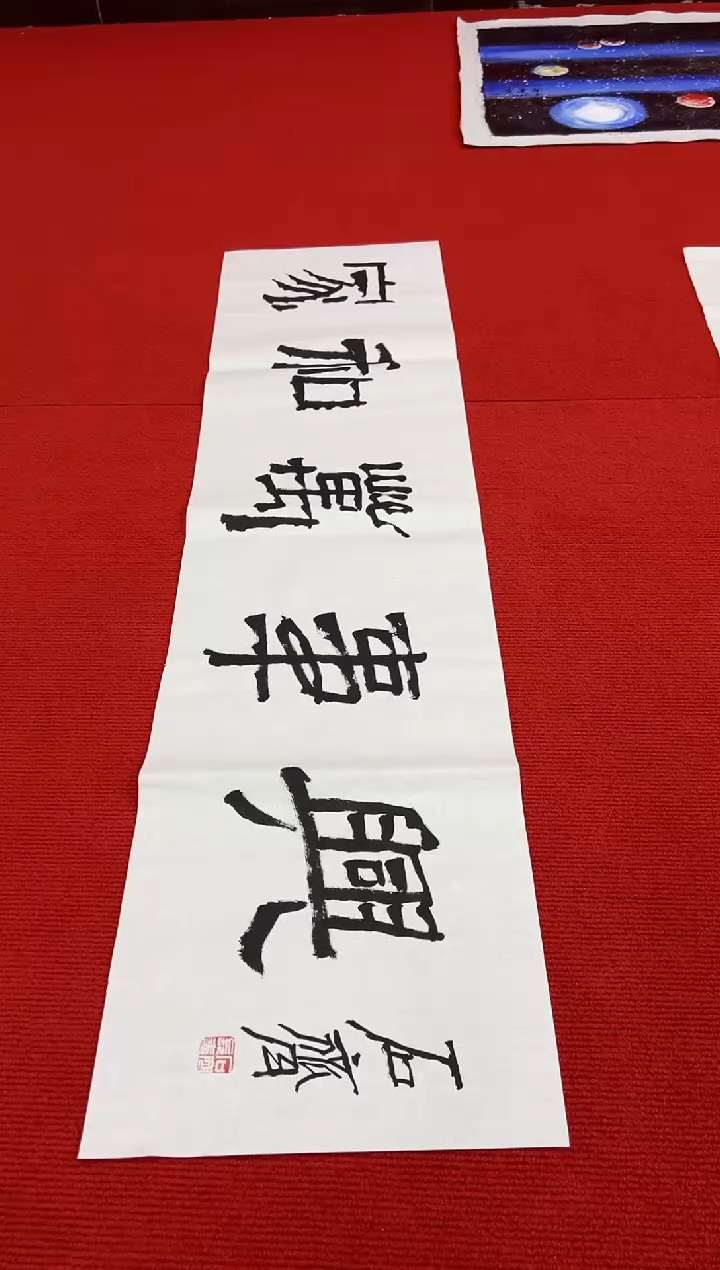 家和萬事興
石齋